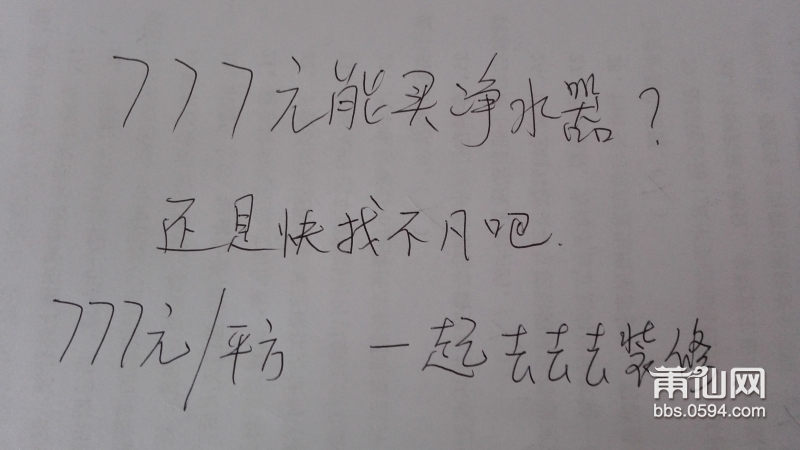 777元能买净水器?
还是快找不凡吧.
777元/平方 一起去去去装修
莆仙网
bbs.0594.com